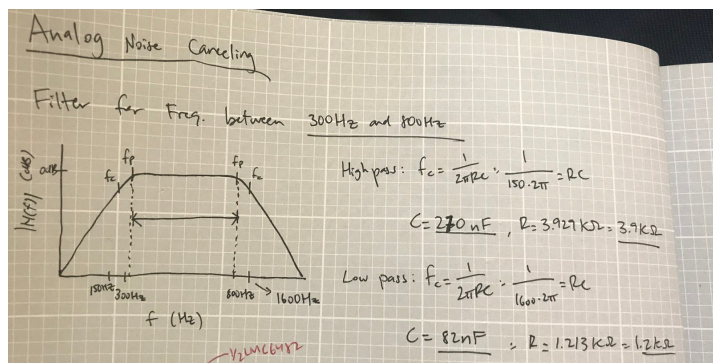 Analog Noise Canceling
Filter for Freq. between 300Hz and 800Hz
0dB
|N(f)| (dB)
fc
fp
fp
fc
150Hz
300Hz
800Hz
1600Hz
f (Hz)
High pass: fc = 1/2πRC ∴ 1/150·2π = RC
C = 270 nF, R = 3.929 kΩ = 3.9 kΩ
Low pass: fc = 1/2πRC ∴ 1/1600·2π = RC
C = 82nF ∴ R = 1.213 kΩ = 1.2 kΩ
1/2 LMC6482